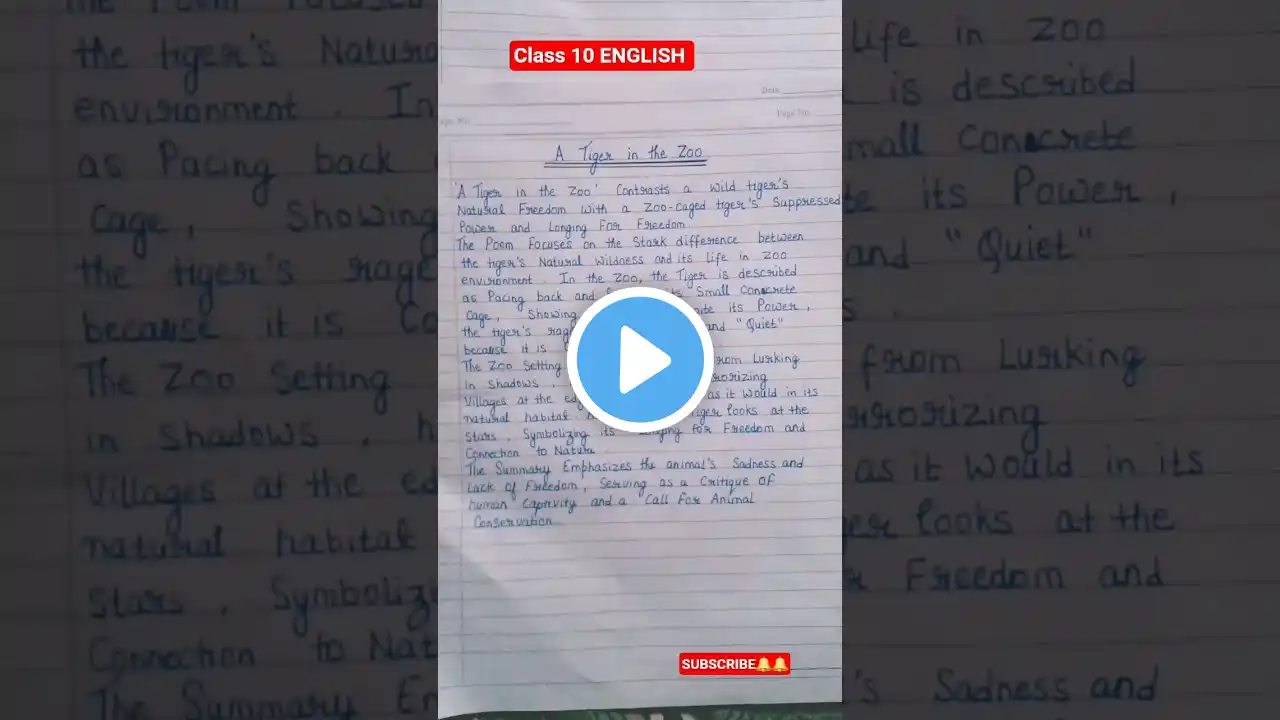 Class 10 ENGLISH
Date
Page No.
A Tiger in the Zoo
'A Tiger in the Zoo' Contrasts a Wild tiger's
Natural Freedom With a Zoo-caged tiger's Suppressed
Power and Longing For Freedom.
The Poem Focuses on the Stark difference between
the tiger's Natural Wildness and its Life in Zoo
environment. In the Zoo, the Tiger is described
as Pacing back and Small Concrete
Cage, Showing its Power,
the tiger's rage and "Quiet"
because it is
The Zoo Setting from Lurking
in Shadows,
Villages at the as it Would in its
natural habitat looks at the
Stars, Symbolizing its Longing for Freedom and
Connection to Nature
The Summary Emphasizes the animal's Sadness and
Lack of Freedom, Serving as a Critique of
human Captivity and a Call For Animal
Conservation
SUBSCRIBE🔔🔔